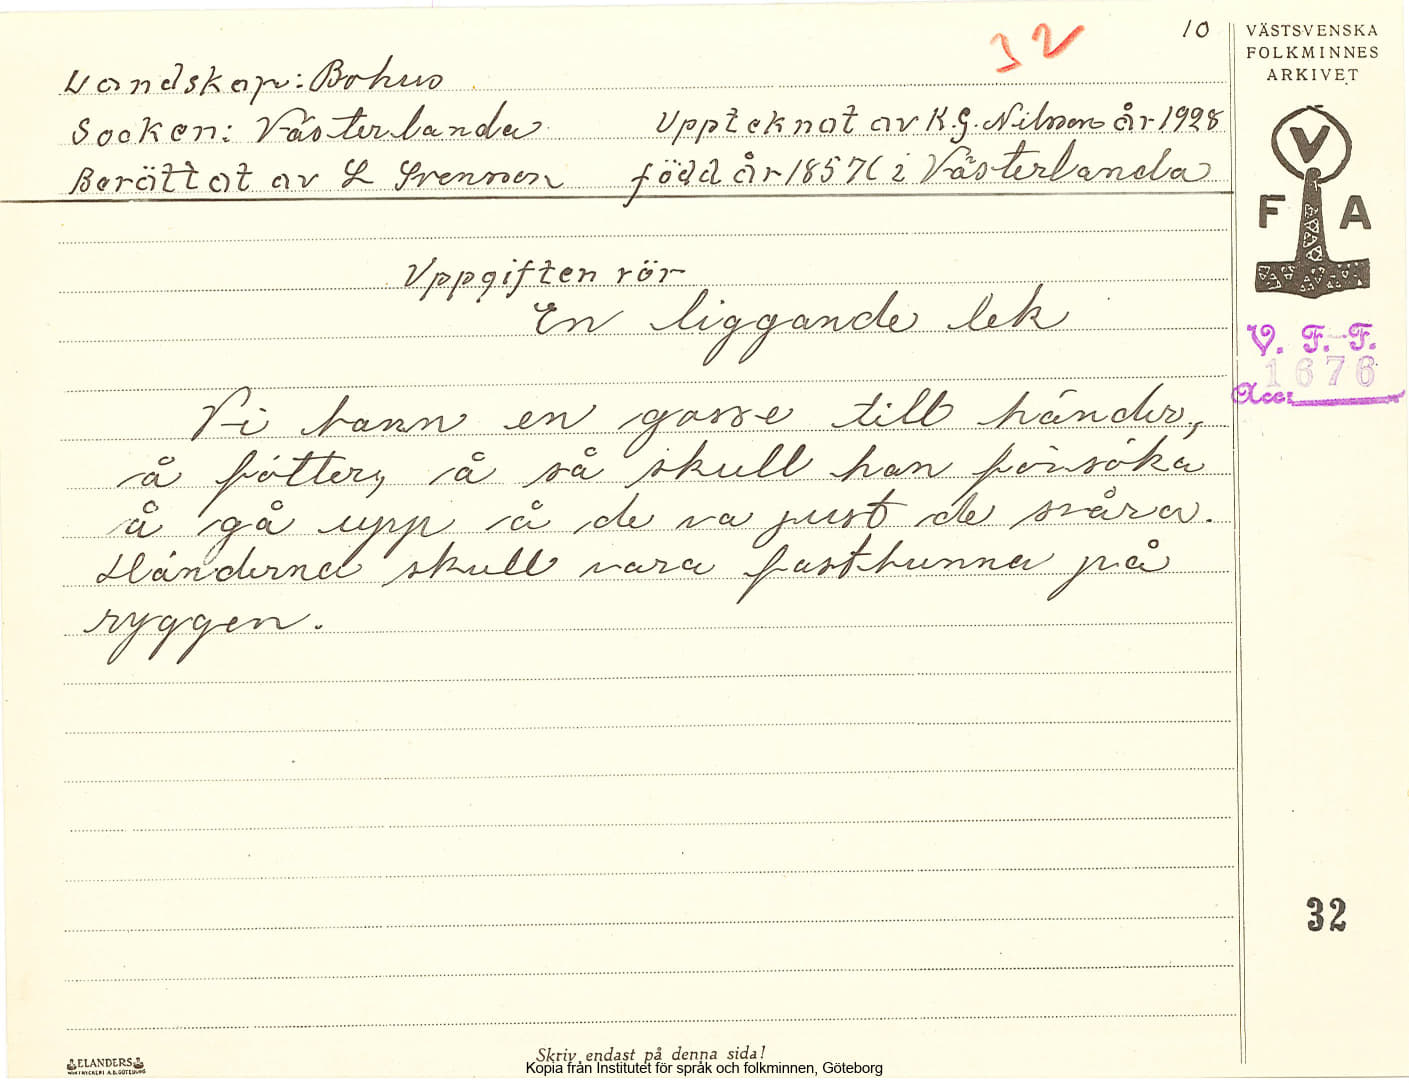 32
10
Landskap: Bohus
Socken: Västerlanda Upptecknat av K.G. Nilsson år 1928
Berättat av L Svensson född år 1857 i Västerlanda
Uppgiften rör
En liggande lek
Vi bann en gosse till händer,
å fötter, å så skull han försöka
å gå upp å de va just de svåra.
Händerna skull vara fastbunna på
ryggen.
VÄSTSVENSKA
FOLKMINNES
ARKIVET
V
F A
V. F. F.
1676
Acc:
32
ELANDERS
Skriv endast på denna sida!
Kopia från Institutet för språk och folkminnen, Göteborg